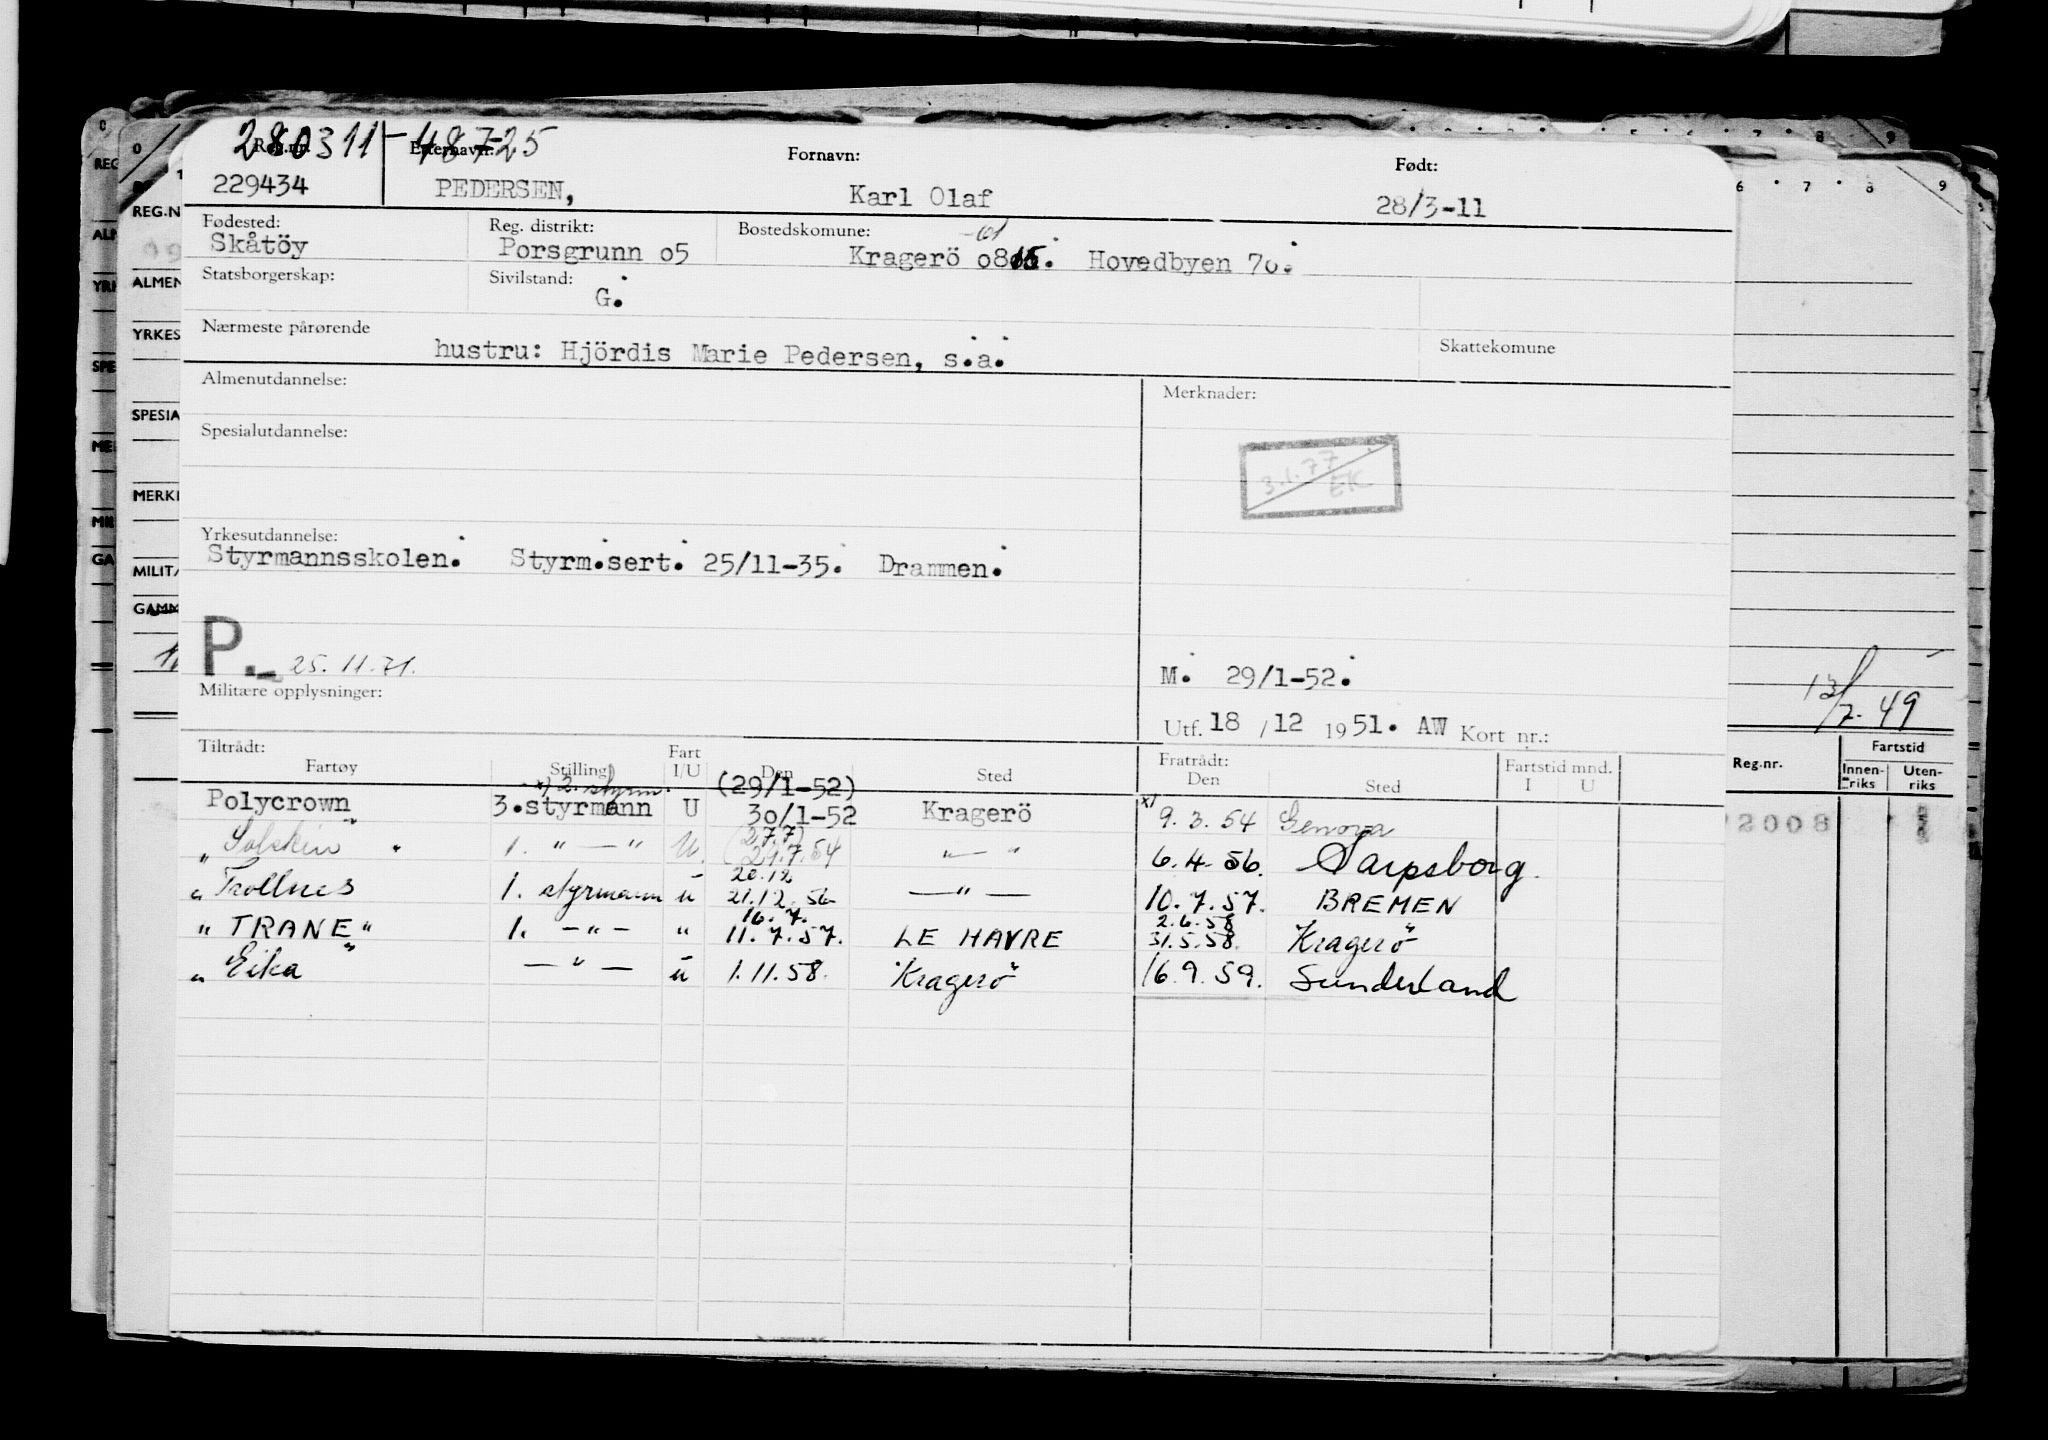 280311-48725
Reg.nr. Etternavn: Fornavn: Født:
229434 PEDERSEN, Karl Olaf 28/3-11
Fødested: Reg. distrikt: Bostedskomune:
Skåtöy Porsgrunn o5 Kragerö Hovedbyen 7o.
Statsborgerskap: Sivilstand:
G.
Nærmeste pårørende Skattekomune
hustru: Hjördis Marie Pedersen, s.a.
Almenutdannelse: Merknader:
Spesialutdannelse:
3.1.77
EK
Yrkesutdannelse:
Styrmannsskolen. Styrm.sert. 25/11-35. Drammen.
P.- 25.11.71. M. 29/1-52.
Militære opplysninger:
Utf. 18/12 1951. AW Kort nr.:
Tiltrådt: Fratrådt:
Fartøy Stilling Fart I/U Den Sted Den Sted Fartstid mnd. I U
x) 2. styrm. (29/1-52)
Polycrown 3.styrmann U 3o/1-52 Kragerö x) 9.3.54 Genova
(27.7)
"Solskin" 1. "—" U. 21.7.54 "—" 6.4.56. Sarpsborg.
20.12
"Trollnes" 1. styrmann u 21.12.56 —"— 10.7.57. BREMEN
16.7. 2.6.58
"TRANE" 1. -"- " 11.7.57. LE HAVRE 31.5.58. Kragerö
"Eika" —"— u 1.11.58. Kragerö 16.9.59. Sunderland
REG.N
ALMEN
YRKES
SPESIA
MERKI
MILIT
GAMM
13/7-49
Reg.nr. Fartstid
Innenriks Utenriks
2008